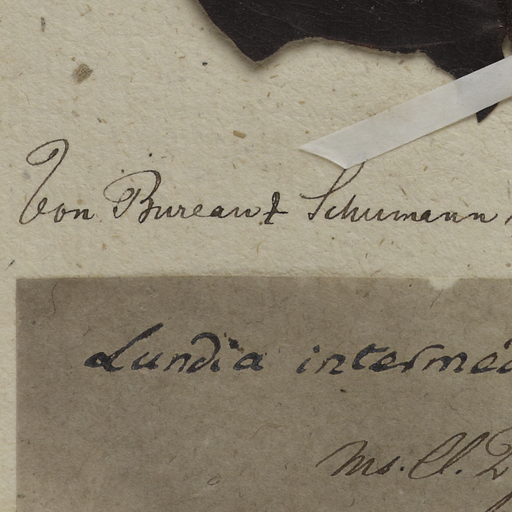 Von Bureau & Schumann
Lundia intermed
Ms. Cl. D